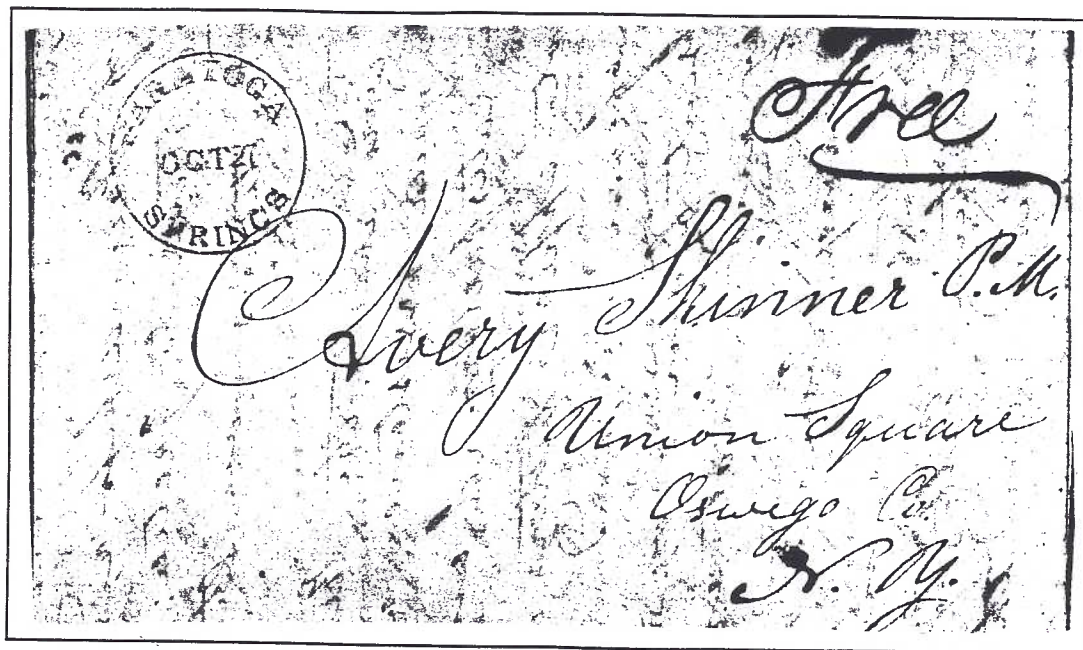 SARATOGA
OCT 21
SPRINGS
Free
Avery Skinner P.M.
Union Square
Oswego Co.
N. Y.